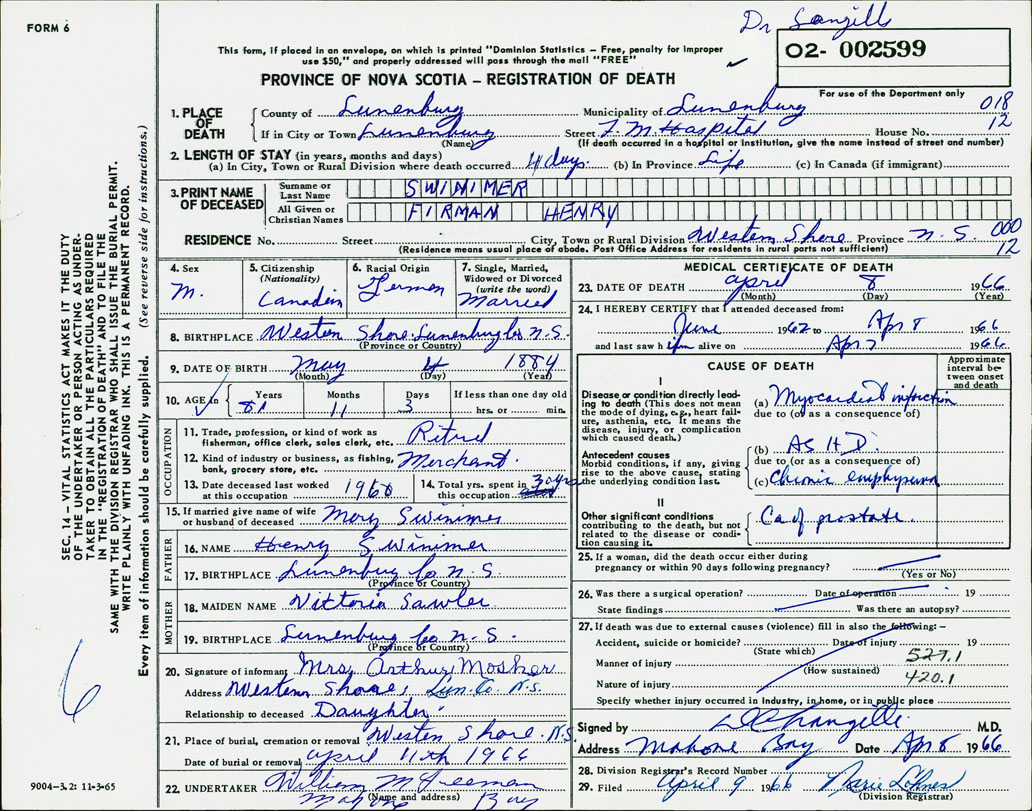 FORM 6
Dr
O2- 002599
This form, if placed in an envelope, on which is printed "Dominion Statistics – Free, penalty for improper
use $50," and properly addressed will pass through the mail "FREE"
PROVINCE OF NOVA SCOTIA – REGISTRATION OF DEATH
For use of the Department only
018
12
1. PLACE OF DEATH
County of Lunenburg Municipality of Lunenburg
If in City or Town Lunenburg Street F. M. Hospital House No.
(Name) (If death occurred in a hospital or institution, give the name instead of street and number)
2. LENGTH OF STAY (in years, months and days)
(a) In City, Town or Rural Division where death occurred 4 days. (b) In Province Life (c) In Canada (if immigrant)
3. PRINT NAME OF DECEASED
Surname or Last Name SWINIMER
All Given or Christian Names FIRMAN HENRY
RESIDENCE No. Street City, Town or Rural Division Western Shore Province N. S. 000
12
(Residence means usual place of abode. Post Office Address for residents in rural parts not sufficient)
4. Sex M.
5. Citizenship (Nationality) Canadian
6. Racial Origin German
7. Single, Married, Widowed or Divorced (write the word) Married
8. BIRTHPLACE Western Shore Lunenburg Co N.S.
(Province or Country)
9. DATE OF BIRTH May 4 1884
(Month) (Day) (Year)
10. AGE in Years 81 Months 11 Days 3 If less than one day old hrs. or min.
OCCUPATION
11. Trade, profession, or kind of work as fisherman, office clerk, sales clerk, etc. Retired
12. Kind of industry or business, as fishing, bank, grocery store, etc. Merchant.
13. Date deceased last worked at this occupation 1960
14. Total yrs. spent in this occupation 30 yrs
15. If married give name of wife or husband of deceased Mary Swinimer
FATHER
16. NAME Henry Swinimer
17. BIRTHPLACE Lunenburg Co N. S.
(Province or Country)
MOTHER
18. MAIDEN NAME Vittoria Sawler
19. BIRTHPLACE Lunenburg Co N. S.
(Province or Country)
20. Signature of informant Mrs Arthur Mosher
Address Western Shore, Lun. Co. N.S.
Relationship to deceased Daughter.
21. Place of burial, cremation or removal Western Shore. N.S.
Date of burial or removal April 11th 1966
22. UNDERTAKER William M Freeman
(Name and address) Mahone Bay
MEDICAL CERTIFICATE OF DEATH
23. DATE OF DEATH April 8 1966
(Month) (Day) (Year)
24. I HEREBY CERTIFY that I attended deceased from:
June 1962 to Apr 8 1966
and last saw him alive on Apr 7 1966
CAUSE OF DEATH
Approximate interval between onset and death
I
Disease or condition directly leading to death (This does not mean the mode of dying, e.g., heart failure, asthenia, etc. It means the disease, injury, or complication which caused death.)
(a) Myocardial infarction
due to (or as a consequence of)
Antecedent causes
Morbid conditions, if any, giving rise to the above cause, stating the underlying condition last.
(b) A S H D.
due to (or as a consequence of)
(c) Chronic emphysema
II
Other significant conditions
contributing to the death, but not related to the disease or condition causing it.
Ca of prostate.
25. If a woman, did the death occur either during pregnancy or within 90 days following pregnancy?
(Yes or No)
26. Was there a surgical operation? Date of operation 19
State findings Was there an autopsy?
27. If death was due to external causes (violence) fill in also the following: –
Accident, suicide or homicide? Date of injury 19
(State which)
Manner of injury 527.1
(How sustained)
Nature of injury 420.1
Specify whether injury occurred in industry, in home, or in public place
Signed by M.D.
Address Mahone Bay Date Apr 8 1966
28. Division Registrar's Record Number
29. Filed April 9 1966
(Division Registrar)
SEC. 14 – VITAL STATISTICS ACT MAKES IT THE DUTY
OF THE UNDERTAKER OR PERSON ACTING AS UNDER-
TAKER TO OBTAIN ALL THE PARTICULARS REQUIRED
IN THE "REGISTRATION OF DEATH" AND TO FILE THE
SAME WITH THE DIVISION REGISTRAR WHO SHALL ISSUE THE BURIAL PERMIT.
WRITE PLAINLY WITH UNFADING INK. THIS IS A PERMANENT RECORD.
Every item of information should be carefully supplied. (See reverse side for instructions.)
6
9004–3.2: 11-3-65